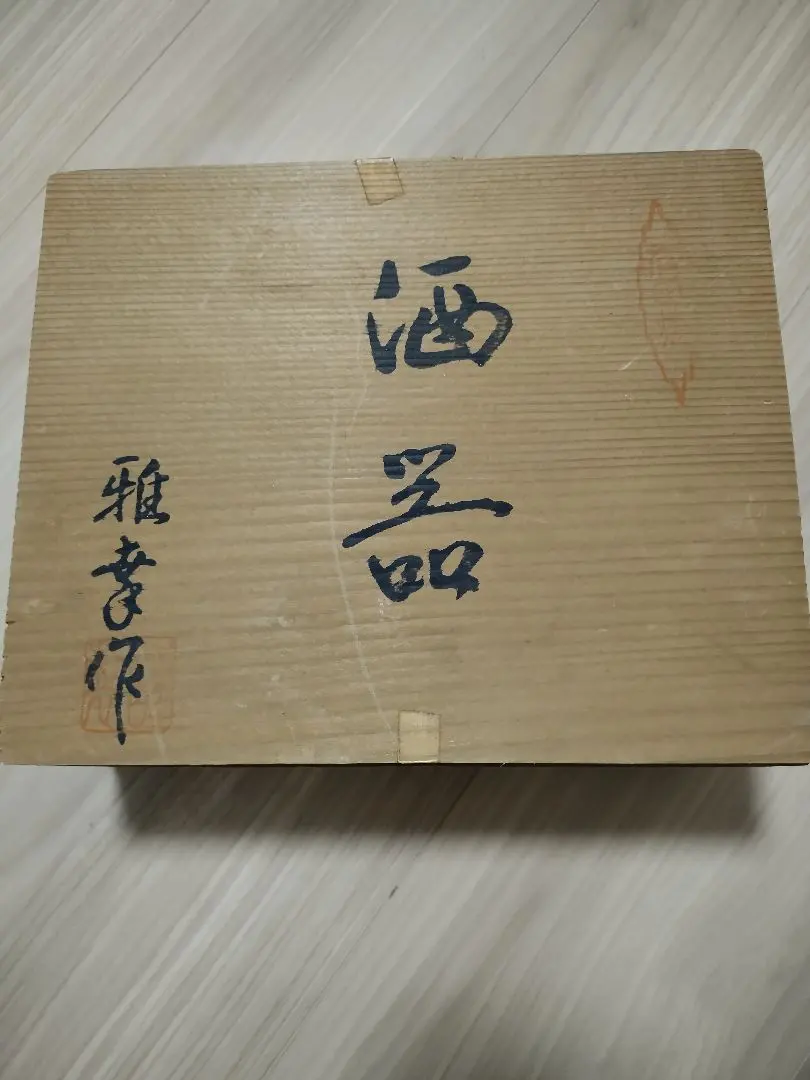 酒器
雅幸作